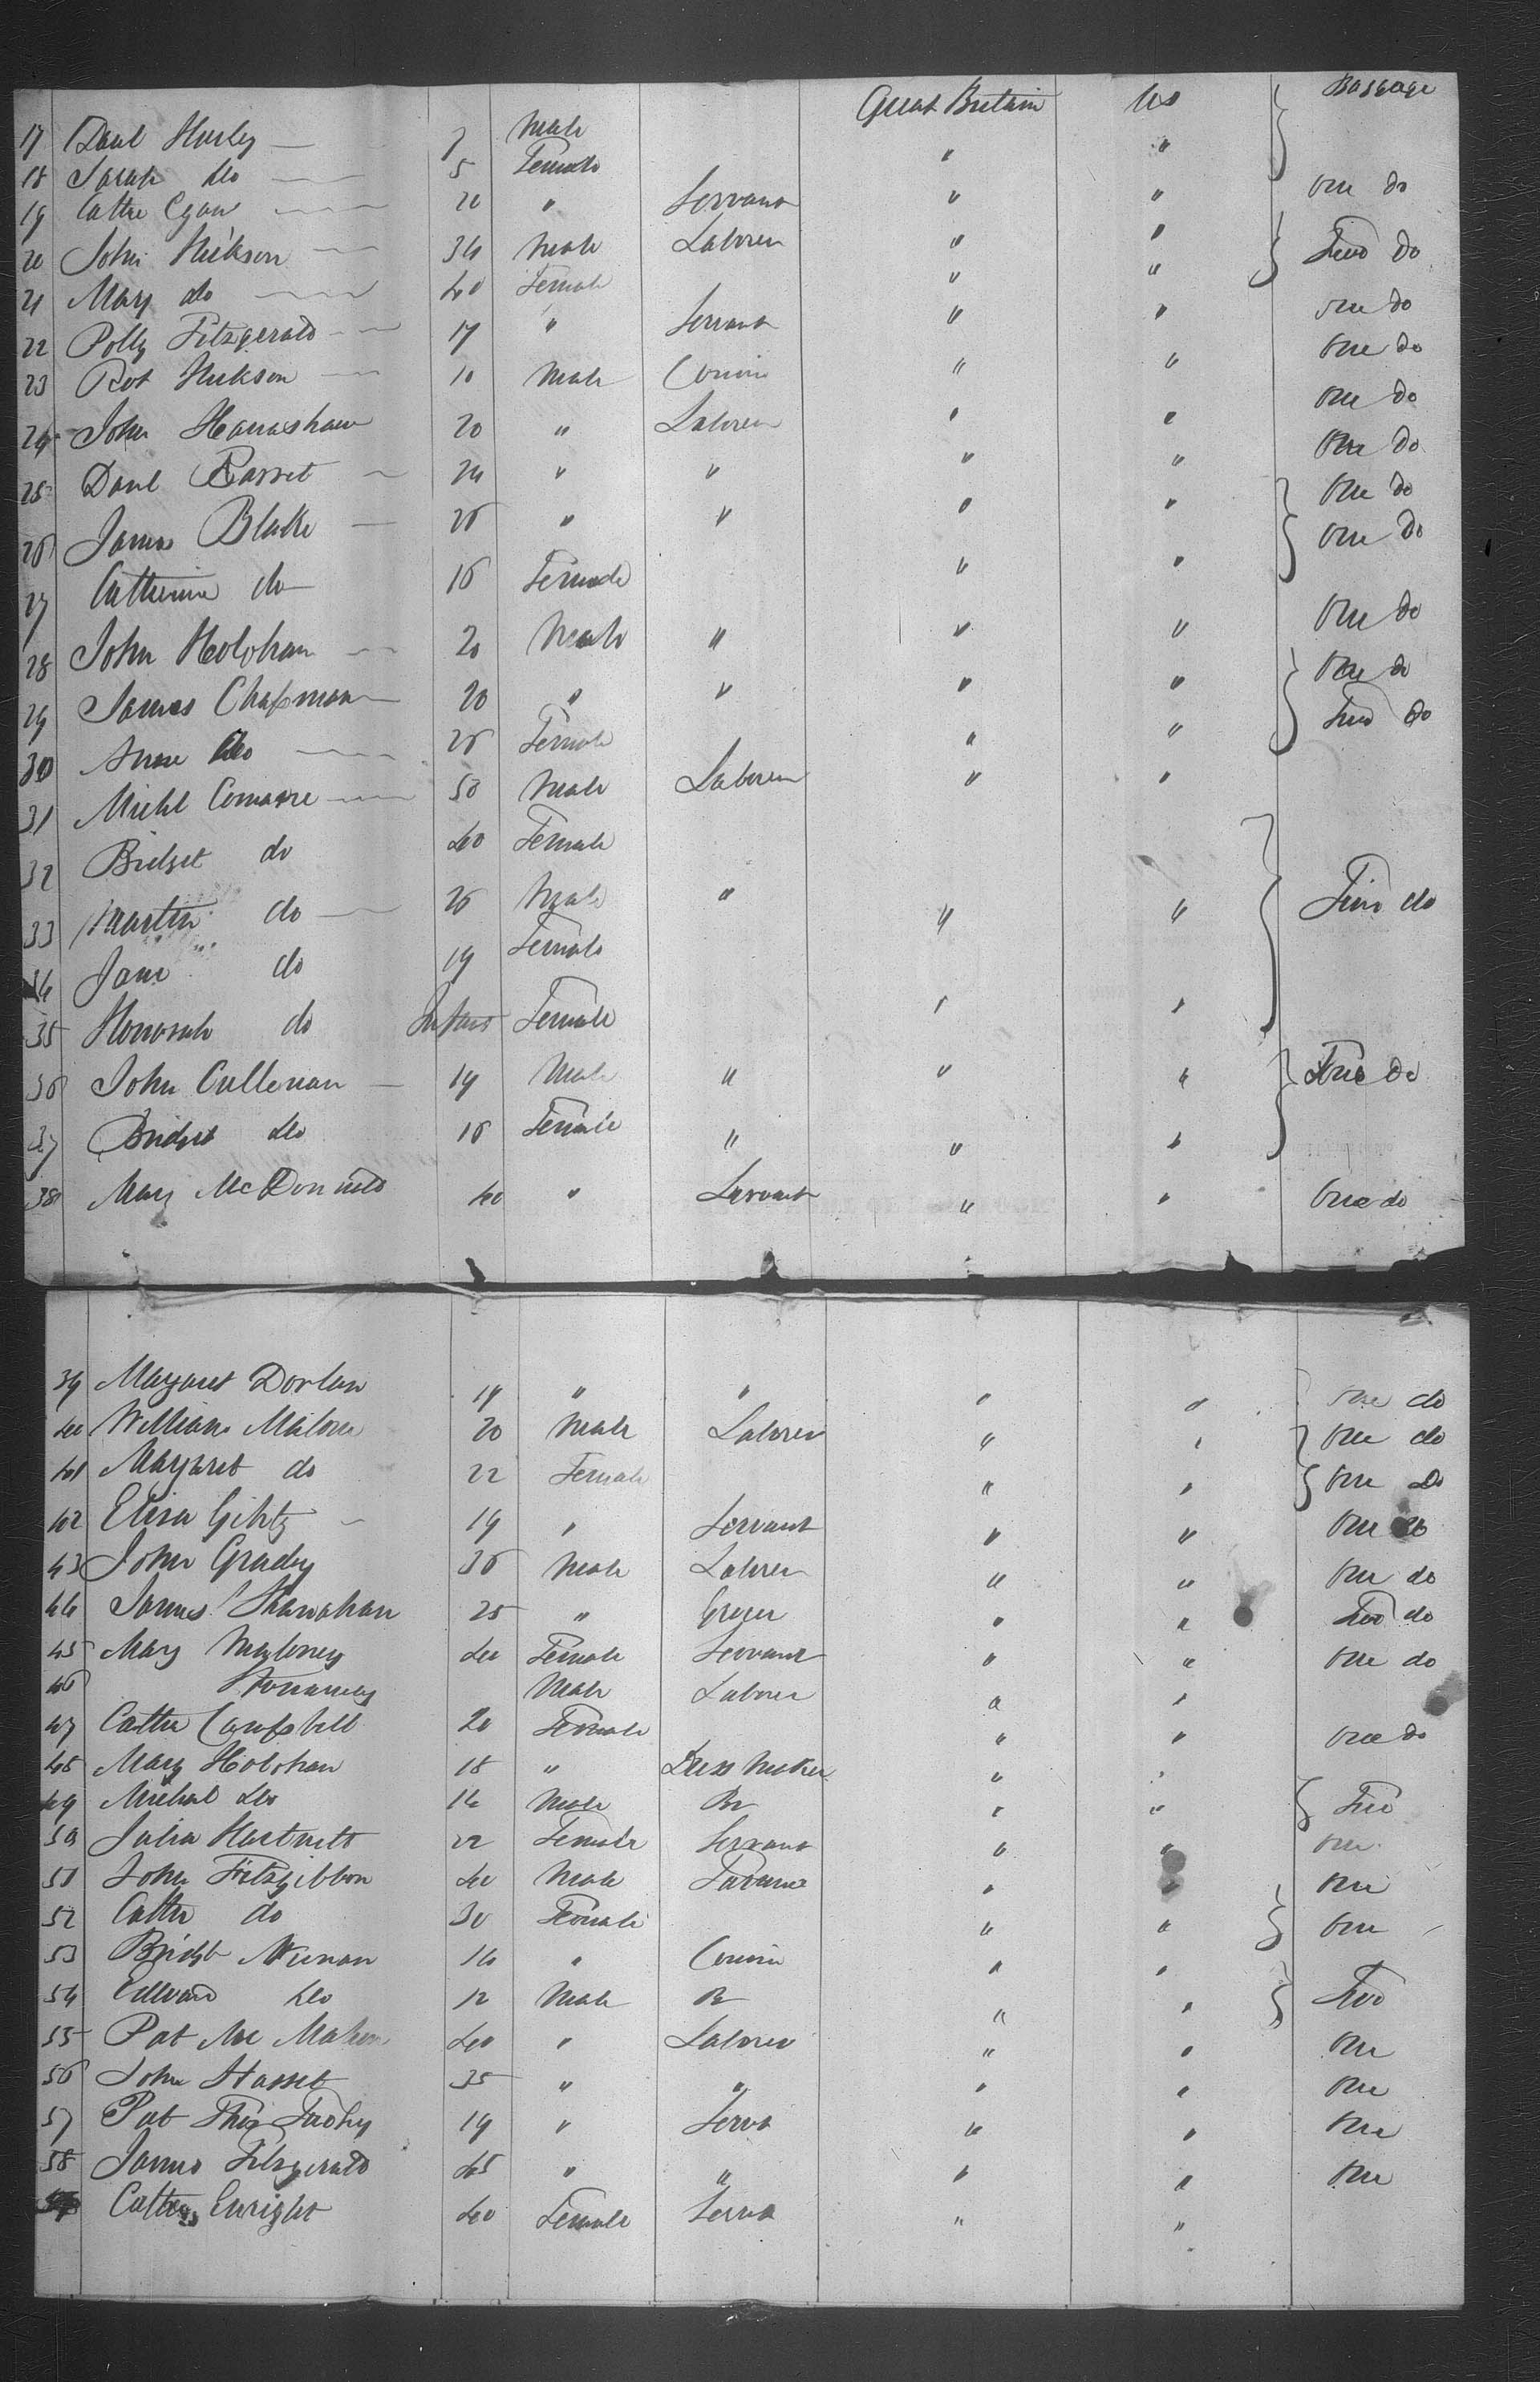 17 Danl Hurley 7 Male Great Britain US Baggage
18 Sarah do 5 Female " "
19 Cathe Egan 20 " Servant " " One do
20 John Hickson 34 Male Laborer " " Two do
21 Mary do 40 Female " "
22 Polly Fitzgerald 17 " Servant " " One do
23 Rot Hickson 10 Male " " One do
24 John Hanrahan 20 " Laborer " " One do
25 Danl 24 " " " " One do
26 James Blake 26 " " " " One do
27 Catherine do 16 Female " " One do
28 John Holohan 20 Male " " " One do
29 James Chapman 20 " " " " One do
30 Anne do 26 Female " " Two do
31 Michl 50 Male Laborer " "
32 Bridget do 40 Female
33 Martin do 26 Male " " " Two do
34 Jane do 19 Female
35 Honorah do Infant Female " "
36 John Cullenan 19 Male " " " do
37 Bridget do 16 Female " " "
38 Mary McDonnald 40 " Servant " " One do
39 Margaret Dorlan 19 " " " " One do
40 William Malone 20 Male Laborer " " One do
41 Margaret do 22 Female " " One Do
42 Eliza 19 " Servant " " One do
43 John Grady 36 Male Laborer " " One do
44 James Shanahan 25 " Grocer " " Two do
45 Mary Moloney 40 Female Servant " " One do
46 Male Laborer " "
47 Cathe Campbell 20 Female " " One do
48 Mary Holohan 18 " Dress Maker " "
49 Michael do 14 Male " " Two
50 Julia Hartnett 22 Female Servant " " One
51 John Fitzgibbon 40 Male Farmer " " One
52 Cathe do 30 Female " " One
53 Bridgt Neenan 14 " " "
54 Edward do 12 Male " " Two
55 Pat Mc Mahon 40 " Laborer " " One
56 John Hasset 35 " " " " One
57 Pat 19 " Servt " " One
58 James Fitzgerald 45 " " " " One
Cathe Enright 40 Female Servt " "